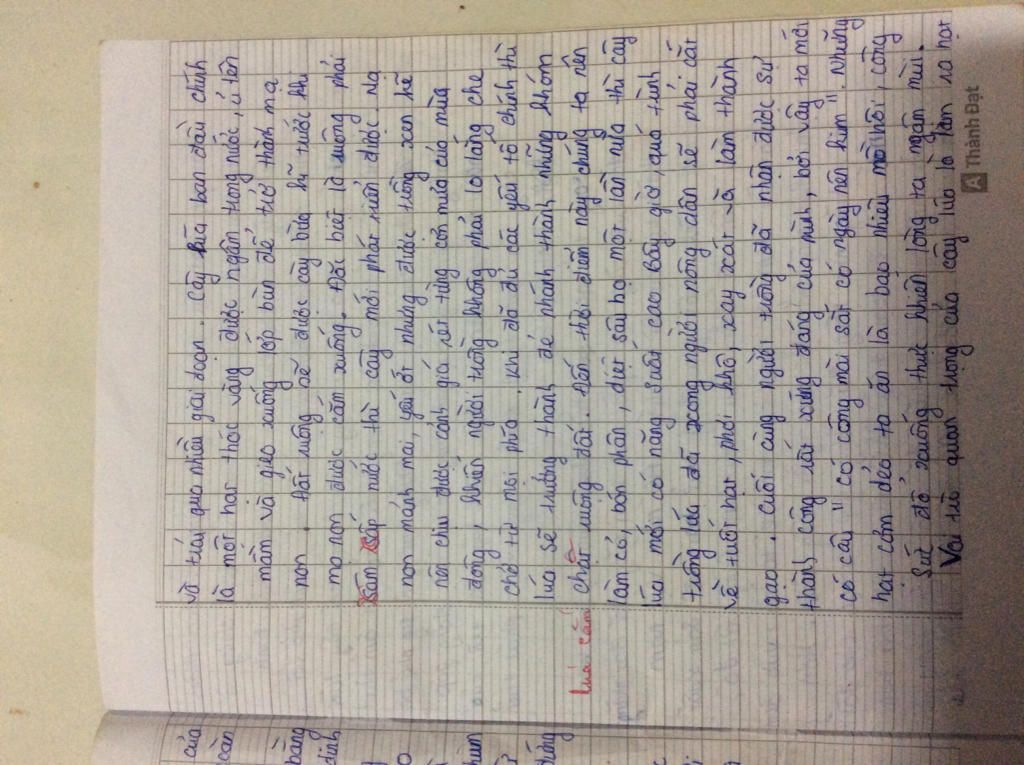 và trải qua nhiều giai đoạn. Cây lúa ban đầu chính
là một hạt thóc vàng được ngâm trong nước, ủ lên
mầm và gieo xuống lớp bùn để trở thành mạ
non. Đất ruộng sẽ được cày bừa kĩ trước khi
mạ non được cắm xuống. Đặc biệt là ruộng phải
xâm xấp nước thì cây mới phát triển được. Mạ
non mảnh mai, yếu ớt nhưng được trồng xen kẽ
nên chịu được cảnh giá rét từng cơn mưa của mùa
đông, khiến người trồng không phải lo lắng che
chở từ mọi phía. Khi đã đủ các yếu tố chính thì
lúa sẽ trưởng thành đẻ nhánh thành những khóm
chất ruộng đất. Đến thời điểm này chúng ta nên
làm cỏ, bón phân, diệt sâu bọ một lần nữa thì cây
lúa mới có năng suất cao. Bây giờ, quá trình
trồng lúa đã xong người nông dân sẽ phải cắt
về tuốt hạt, phơi khô, xay xát và làm thành
gạo. cuối cùng người trồng đã nhận được sự
thành công rất xứng đáng của mình, bởi vậy ta mới
có câu " có công mài sắt có ngày nên kim". Những
hạt cơm dẻo ta ăn là bao nhiêu mồ hôi, công
sức đổ xuống thực khiến lòng ta ngậm mùi.
Vai trò quan trọng của cây lúa là làm ra hạt
lúa cấm
của
cần
bằng
định
Thành Đạt